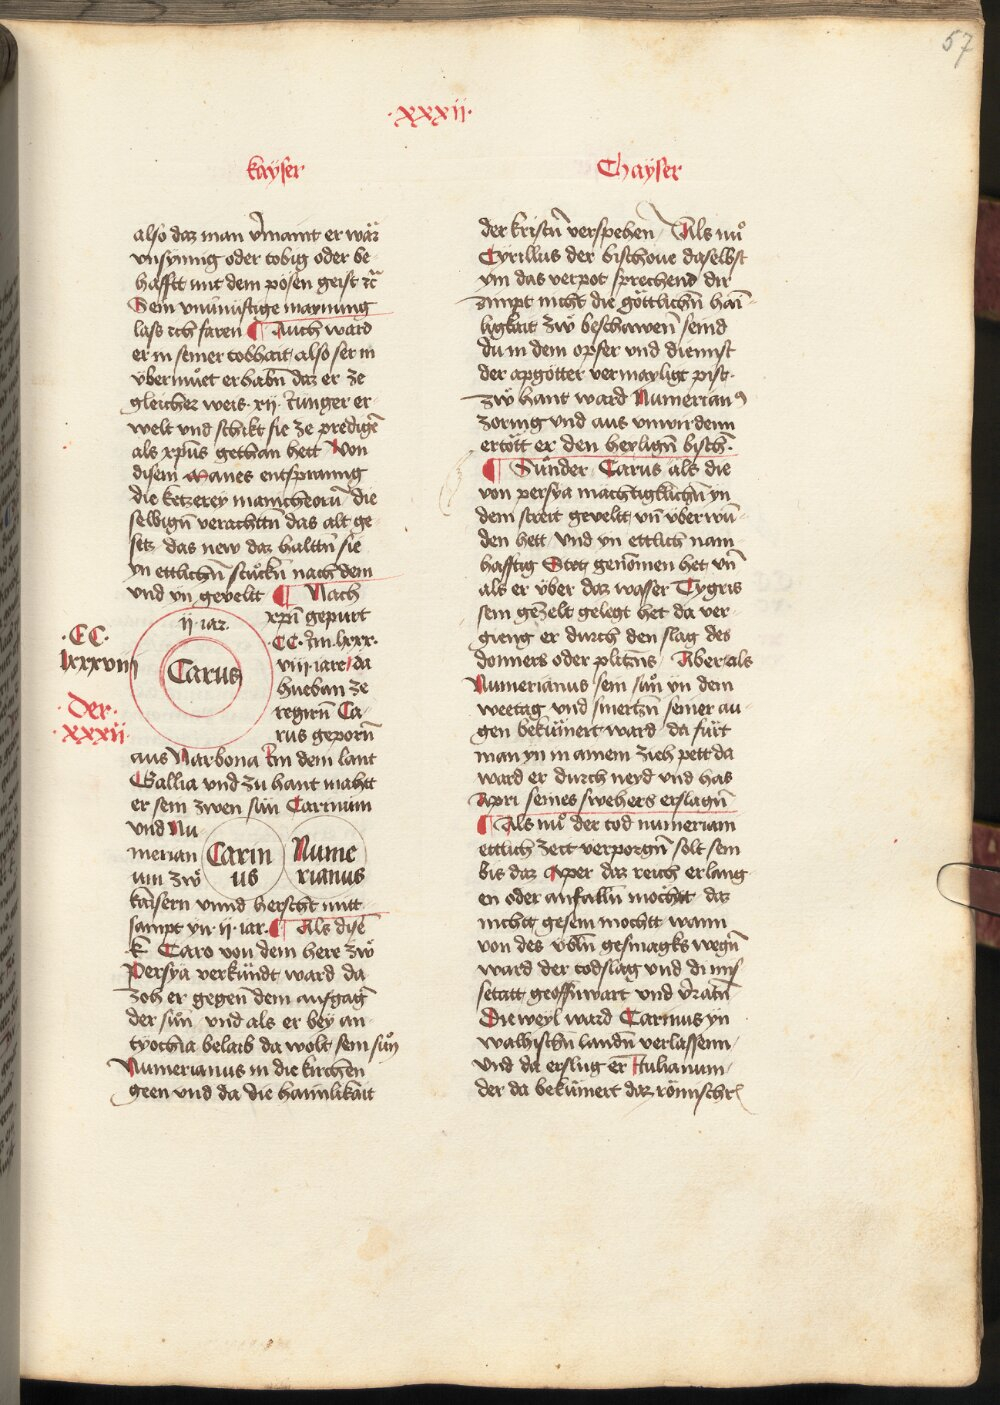 57
·xxxii·
kayser
Chayser
also daz man vermaint er wär
vnsynnig oder tobig oder be-
hafftt mit dem pösen geist etc
Sein vnuernüftige maynung
lass ich faren ¶ Auch ward
er in seiner tobhait also ser in
vbermuet erhabn daz er ze
gleicher weis xij Junger er-
welt vnd schikt sie ze predigen
als xpus gethan hett Von
disem manes entsprannig
die ketzerey manicheoru die
selbign verachttn das alt ge-
setz das new daz halttn sie
yn ettlichn stuckn nach dem
vnd yn gevelit ¶ Nach
xpi gepurt
·CC·
lxxxviij
der
xxxij
ij iar
Carus
CC Im lxxx
viij iare da
hueb an ze
regirn Ca-
rus geporn
aus Narbona Im dem lant
Gallia vnd zu hant maht
er sein zwen sün Carinum
vnd Nu
merian
um zw
Carin
us
Nume
rianus
kaisern vnnd herscht mitt
sampt yn ij iar ¶ Als disem
k Caro von dem here zw
Persya verkündt ward da
zoh er gegen dem aufgang
der sun vnd als er bey an-
tyochia belaib da wolt sein sun
Numerianus in die kirchen
geen vnd da die haimlikait
der kristn verspehen / Als nu
Cyrillus der bischoue daselbst
ym das verpot sprechend dir
zimpt nicht die göttlichn hai-
ligkait zw beschawen seind
du in dem opfer vnd diennst
der apgötter vermayligt pist
zw hant ward Numerian9
zornig vnd aus vnwirdenn
ertött er den heylign bisch
¶ Sunder Carus als die
von persya machtigklichn yn
dem streit gevellt vn vberwun-
den hett vnd yn ettlich nam-
hafftig Stett genomen het vn
als er vber daz wasser Tygris
sein gezelt gelegt het da ver-
gieng er durch den slag des
donners oder plitzns Aber als
Numerianus sein sun yn dem
weetag vnd smertzn seiner au-
gen bekümert ward da fürt
man yn in ainem zieh pett da
ward er durch neyd vnd has
Apri seines swehers erslagn
¶ Als nu der tod numeriani
ettlich zeit verporgn solt sein
bis daz Aper daz reich erlang-
en oder anfalln möcht daz
nichtt gesein mochtt wann
von des vbln gesmagks wegn
ward der todslag vnd di mis
setatt geoffnwart vnd verratn
Die weyl ward Carinus yn
walhischn landn verlassenn
vnd da erslug er Iulianum
der da bekümert daz römisch r